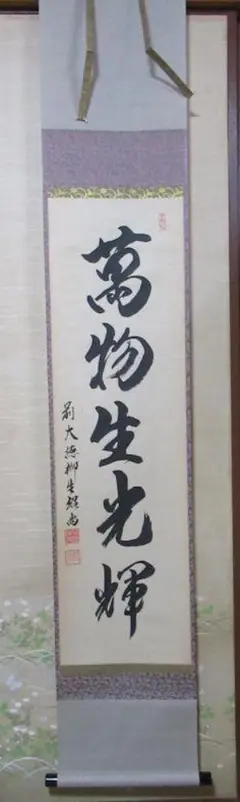 萬物生光輝
前大徳柳生紹尚